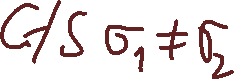 G/S σ₁ ≠ σ₂